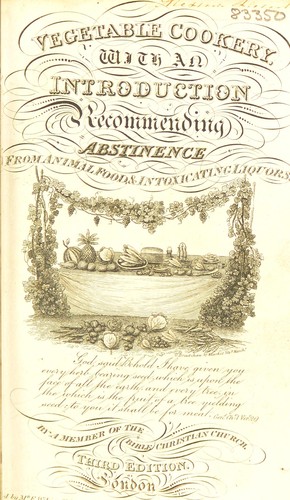 83350
VEGETABLE COOKERY,
WITH AN
INTRODUCTION
Recommending
ABSTINENCE
FROM ANIMAL FOOD & INTOXICATING LIQUORS.
God said Behold I have given you
every herb bearing seed which is upon the
face of all the earth and every tree in
the which is the fruit of a tree yielding
seed; to you it shall be for meat.
BY A MEMBER OF THE BIBLE CHRISTIAN CHURCH.
THIRD EDITION.
London